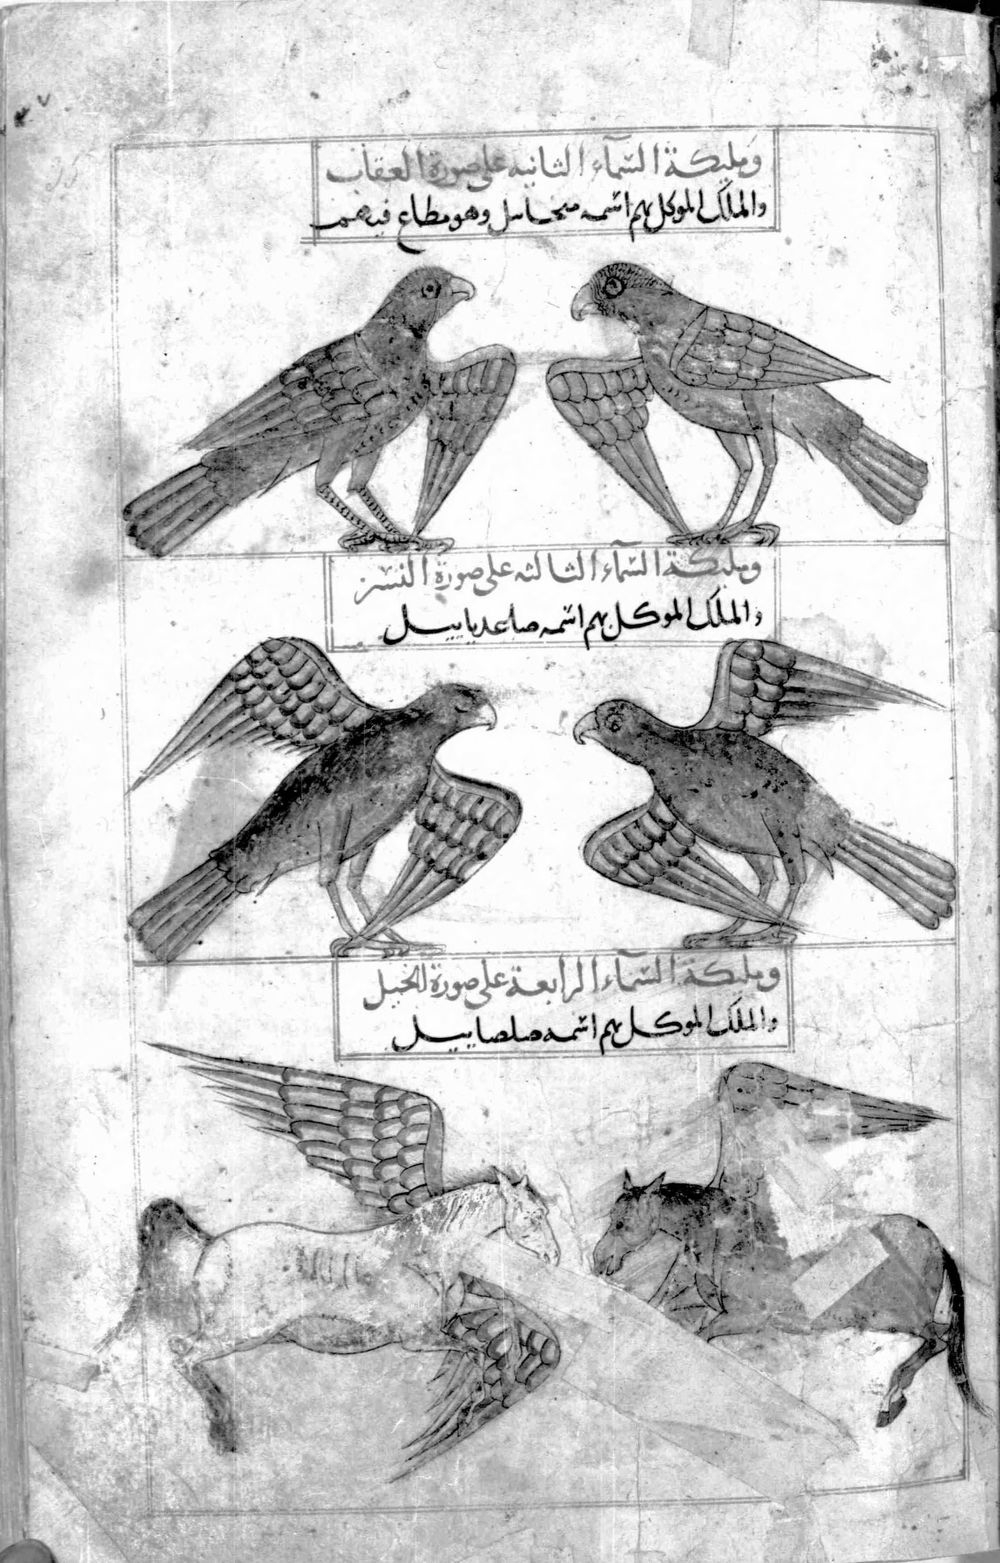 وملىكة السّمآء الثانيه على صورة العقاب
والملك الموكل بهم اسّمه ميحاىيل وهو مطاع فيهم
وملىكة السّمآء الثالثه على صورة النسر
والملك الموكل بهم اسّمه صاعدياييل
وملىكة السّمآء الرابعة على صورة الخيل
والملك الموكل بهم اسّمه صلصاييل